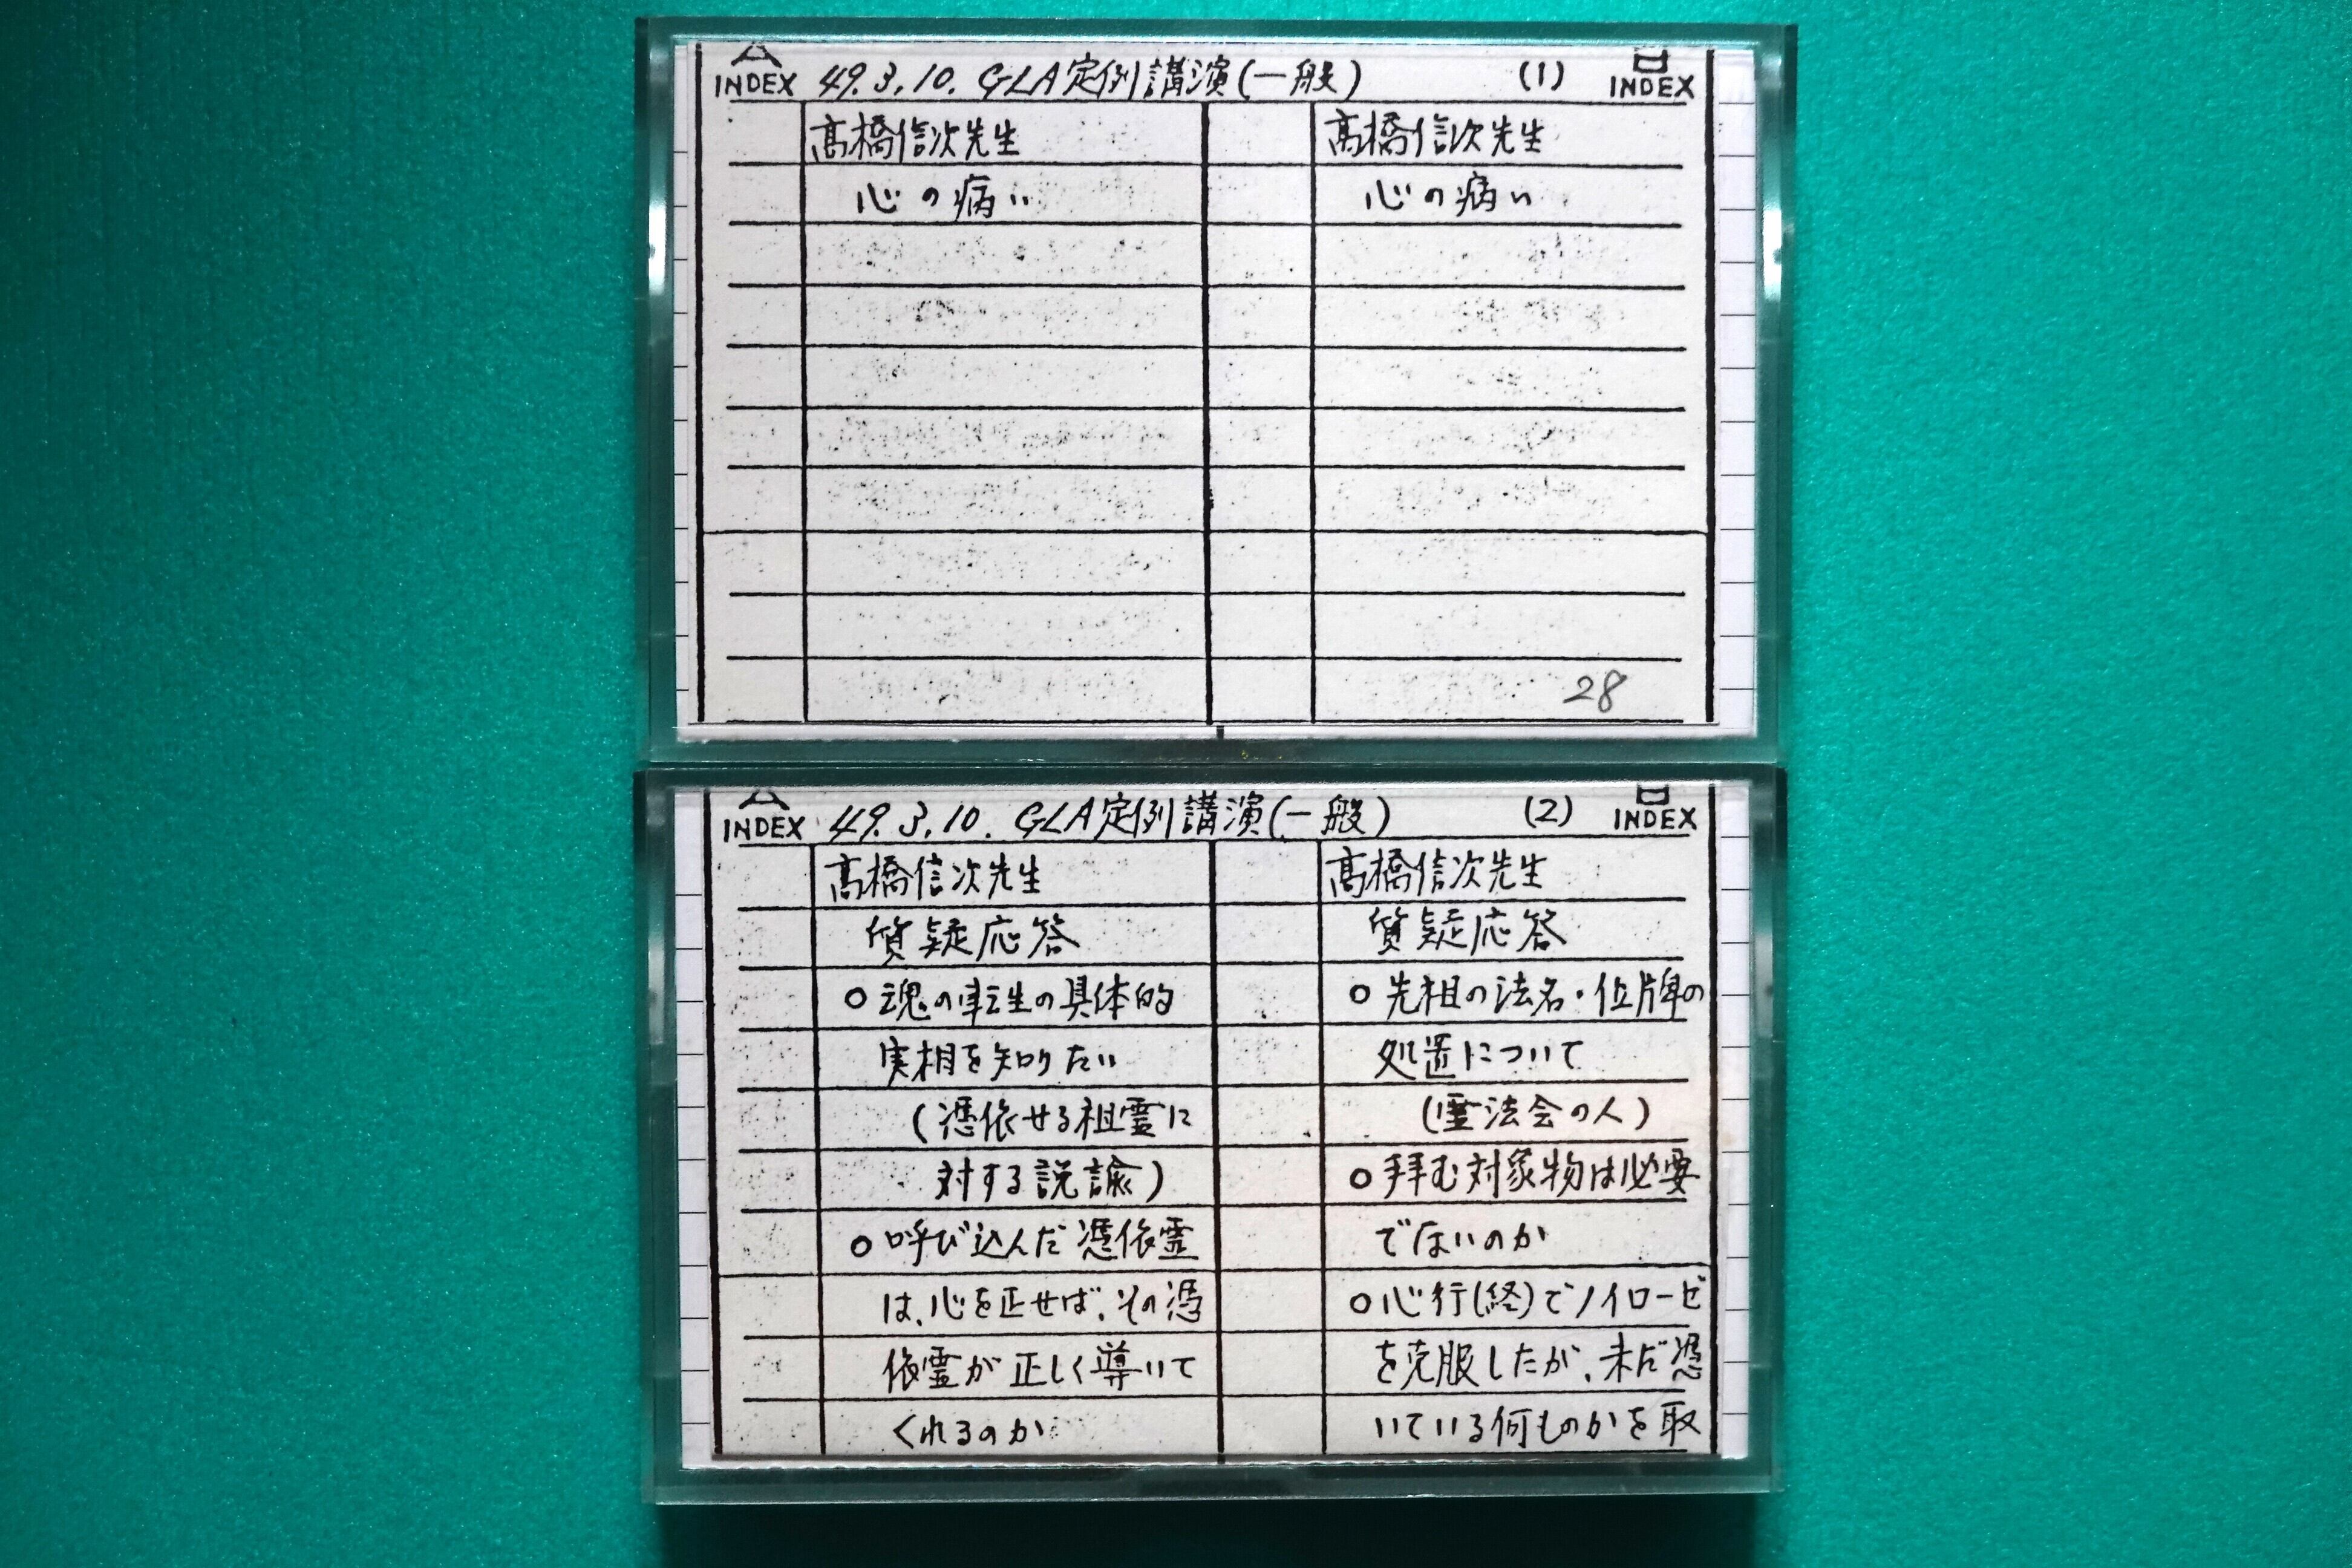 A INDEX 49.3.10. GLA定例講演(一般) (1) B INDEX
髙橋信次先生
心の病い
髙橋信次先生
心の病い
28
A INDEX 49.3.10. GLA定例講演(一般) (2) B INDEX
髙橋信次先生
質疑応答
○魂の転生の具体的
実相を知りたい
(憑依せる祖霊に
対する説諭)
○呼び込んだ憑依霊
は、心を正せば、その憑
依霊が正しく導いて
くれるのか
髙橋信次先生
質疑応答
○先祖の法名・位牌の
処置について
(霊法会の人)
○拝む対象物は必要
でないのか
○心行(経)でノイローゼ
を克服したが、未だ憑
いている何ものかを取